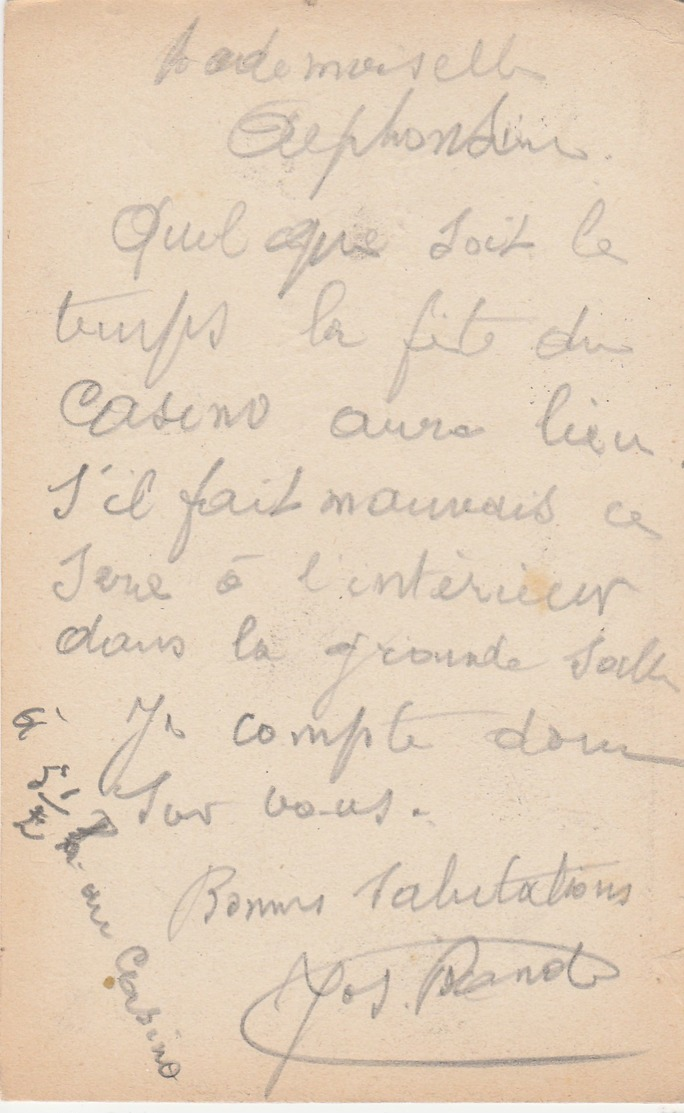 Mademoiselle
Alphonsine.
Quel que soit le
temps la fête du
Casino aura lieu.
S'il fait mauvais ce
sera à l'intérieur
dans la grande salle
Je compte donc
sur vous.
Bonnes salutations
Jos.
à 5 1/2 h. au Casino